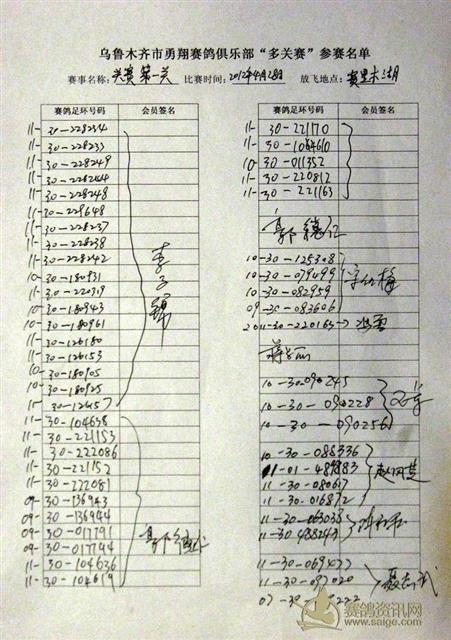 乌鲁木齐市勇翔赛鸽俱乐部“多关赛”参赛名单
赛事名称：关赛第一关 比赛时间：2012年4月28日 放飞地点：赛里木湖
赛鸽足环号码 会员签名
11-30-228234
11-30-228233
11-30-228249
11-30-228244
11-30-228248
11-30-228237
11-30-228238
11-30-228242
10-30-180931
10-30-180943
10-30-180961
11-30-126180
11-30-126153
10-30-180905
10-30-180925
11-30-104638
11-30-221153
11-30-222086
11-30-221152
11-30-222081
09-30-136943
09-30-136944
09-30-017791
09-30-017744
11-30-104636
11-30-104619
赛鸽足环号码 会员签名
11-30-221170
11-30-106460
10-30-011352
11-30-220812
11-30-221163
10-30-125308
10-30-079499
10-30-082959
09-30-083606
2011-30-220163
10-30-090245
10-30-090228
10-30-090256
10-30-088336
11-30-080617
11-30-016872
11-30-063038
11-30-069477
11-30-097020
赛鸽资讯网
www.saige.com